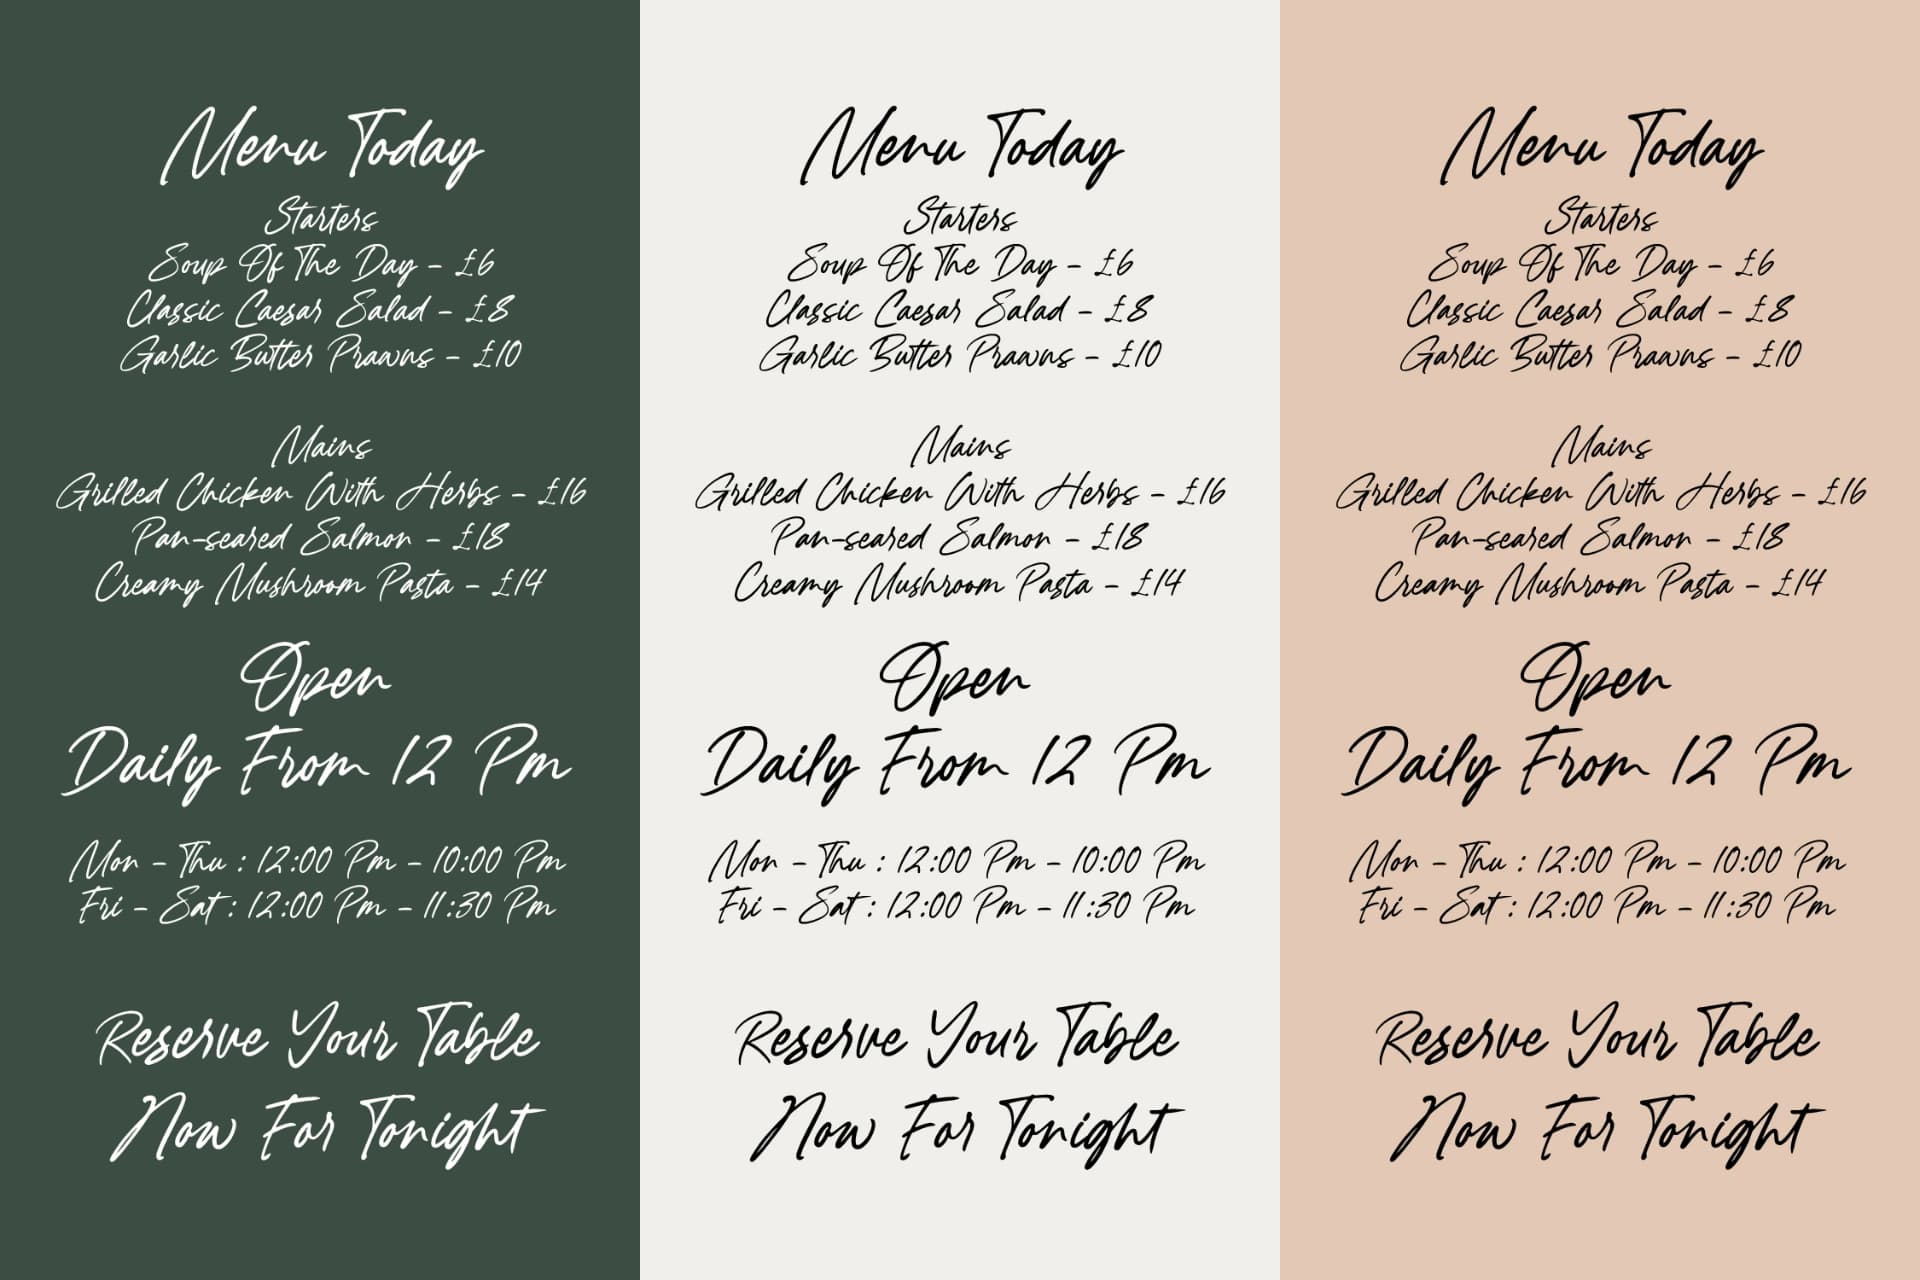 Menu Today
Starters
Soup Of The Day - £6
Classic Caesar Salad - £8
Garlic Butter Prawns - £10
Mains
Grilled Chicken With Herbs - £16
Pan-seared Salmon - £18
Creamy Mushroom Pasta - £14
Open
Daily From 12 Pm
Mon - Thu : 12:00 Pm - 10:00 Pm
Fri - Sat : 12:00 Pm - 11:30 Pm
Reserve Your Table
Now For Tonight
Menu Today
Starters
Soup Of The Day - £6
Classic Caesar Salad - £8
Garlic Butter Prawns - £10
Mains
Grilled Chicken With Herbs - £16
Pan-seared Salmon - £18
Creamy Mushroom Pasta - £14
Open
Daily From 12 Pm
Mon - Thu : 12:00 Pm - 10:00 Pm
Fri - Sat : 12:00 Pm - 11:30 Pm
Reserve Your Table
Now For Tonight
Menu Today
Starters
Soup Of The Day - £6
Classic Caesar Salad - £8
Garlic Butter Prawns - £10
Mains
Grilled Chicken With Herbs - £16
Pan-seared Salmon - £18
Creamy Mushroom Pasta - £14
Open
Daily From 12 Pm
Mon - Thu : 12:00 Pm - 10:00 Pm
Fri - Sat : 12:00 Pm - 11:30 Pm
Reserve Your Table
Now For Tonight